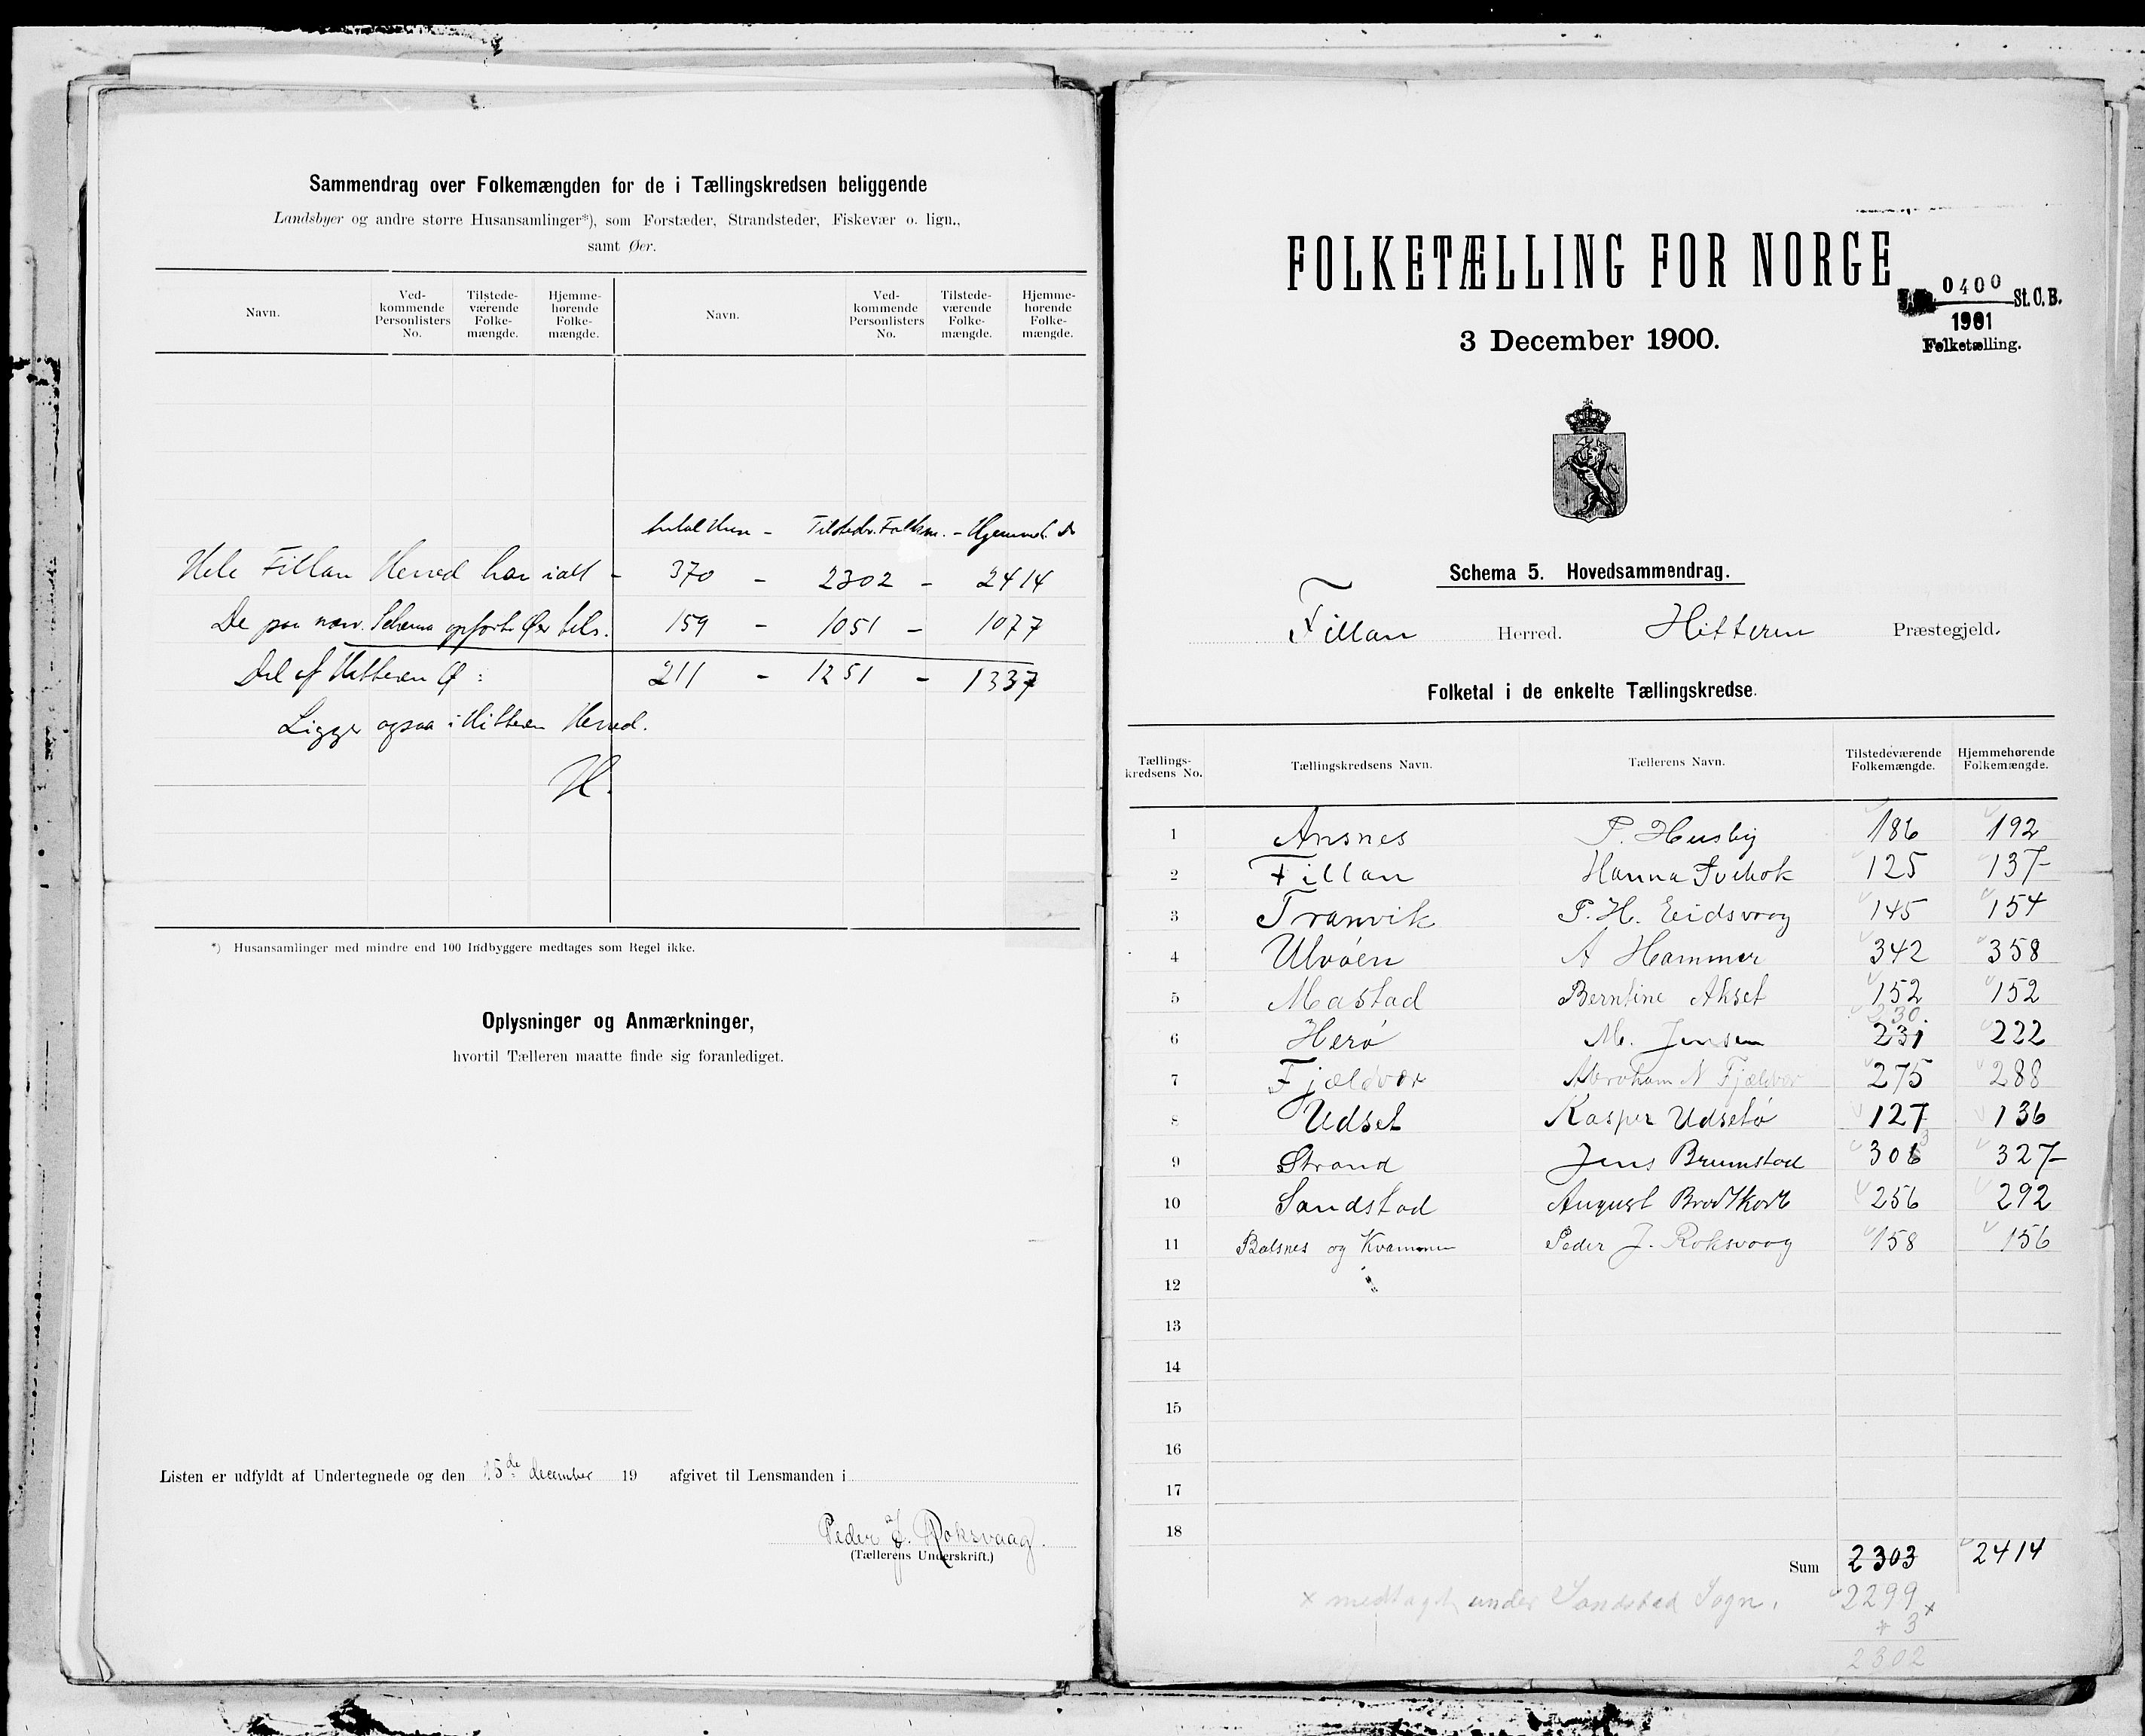 Sammendrag over Folkemængden for de i Tællingskredsen beliggende
Landsbyer og andre større Husansamlinger*), som Forstæder, Strandsteder, Fiskevær o. lign.,
samt Øer.
Navn. Ved-kommende Personlisters No. Tilstede-værende Folke-mængde. Hjemme-hørende Folke-mængde. Navn. Ved-kommende Personlisters No. Tilstede-værende Folke-mængde. Hjemme-hørende Folke-mængde.
Antal Huse - Tilstedv. Folkm. - Hjemmeh. Do
Hele Fillan Herred har ialt - 370 - 2302 - 2414
De paa nærv. Schema opførte Øer tils. 159 - 1051 - 1077
Del af Hitteren Ø: 211 - 1251 - 1337
Ligger ogsaa i Hitteren Herred.
H.
*) Husansamlinger med mindre end 100 Indbyggere medtages som Regel ikke.
Oplysninger og Anmærkninger,
hvortil Tælleren maatte finde sig foranlediget.
Listen er udfyldt af Undertegnede og den 15de december 19 afgivet til Lensmanden i
Peder J. Roksvaag.
(Tællerens Underskrift.)
FOLKETÆLLING FOR NORGE
0400 St. C. B.
1901
Folketælling.
3 December 1900.
Schema 5. Hovedsammendrag.
Fillan Herred. Hitteren Præstegjeld.
Folketal i de enkelte Tællingskredse.
Tællings-kredsens No. Tællingskredsens Navn. Tællerens Navn. Tilstedeværende Folkemængde. Hjemmehørende Folkemængde.
1 Ansnes P. Husby 186 192
2 Fillan Hanna 125 137
3 Tranvik P. H. Eidsvaag 145 154
4 Ulvøen A Hammer 342 358
5 Mastad Berntine Akset 152 152
230.
6 Herø M. Jensen 231 222
7 Fjældvær Abraham N Fjeldvær 275 288
8 Udset Kasper Udsetø 127 136
3
9 Strand Jens Brumstad 306 327
10 Sandstad August Brodtkorb 256 292
11 Balsnes og Kvammen Peder J. Roksvaag 158 156
12
13
14
15
16
17
18
Sum 2303 2414
x medtaget under Sandstad Sogn. 2299
+ 3 x
2302